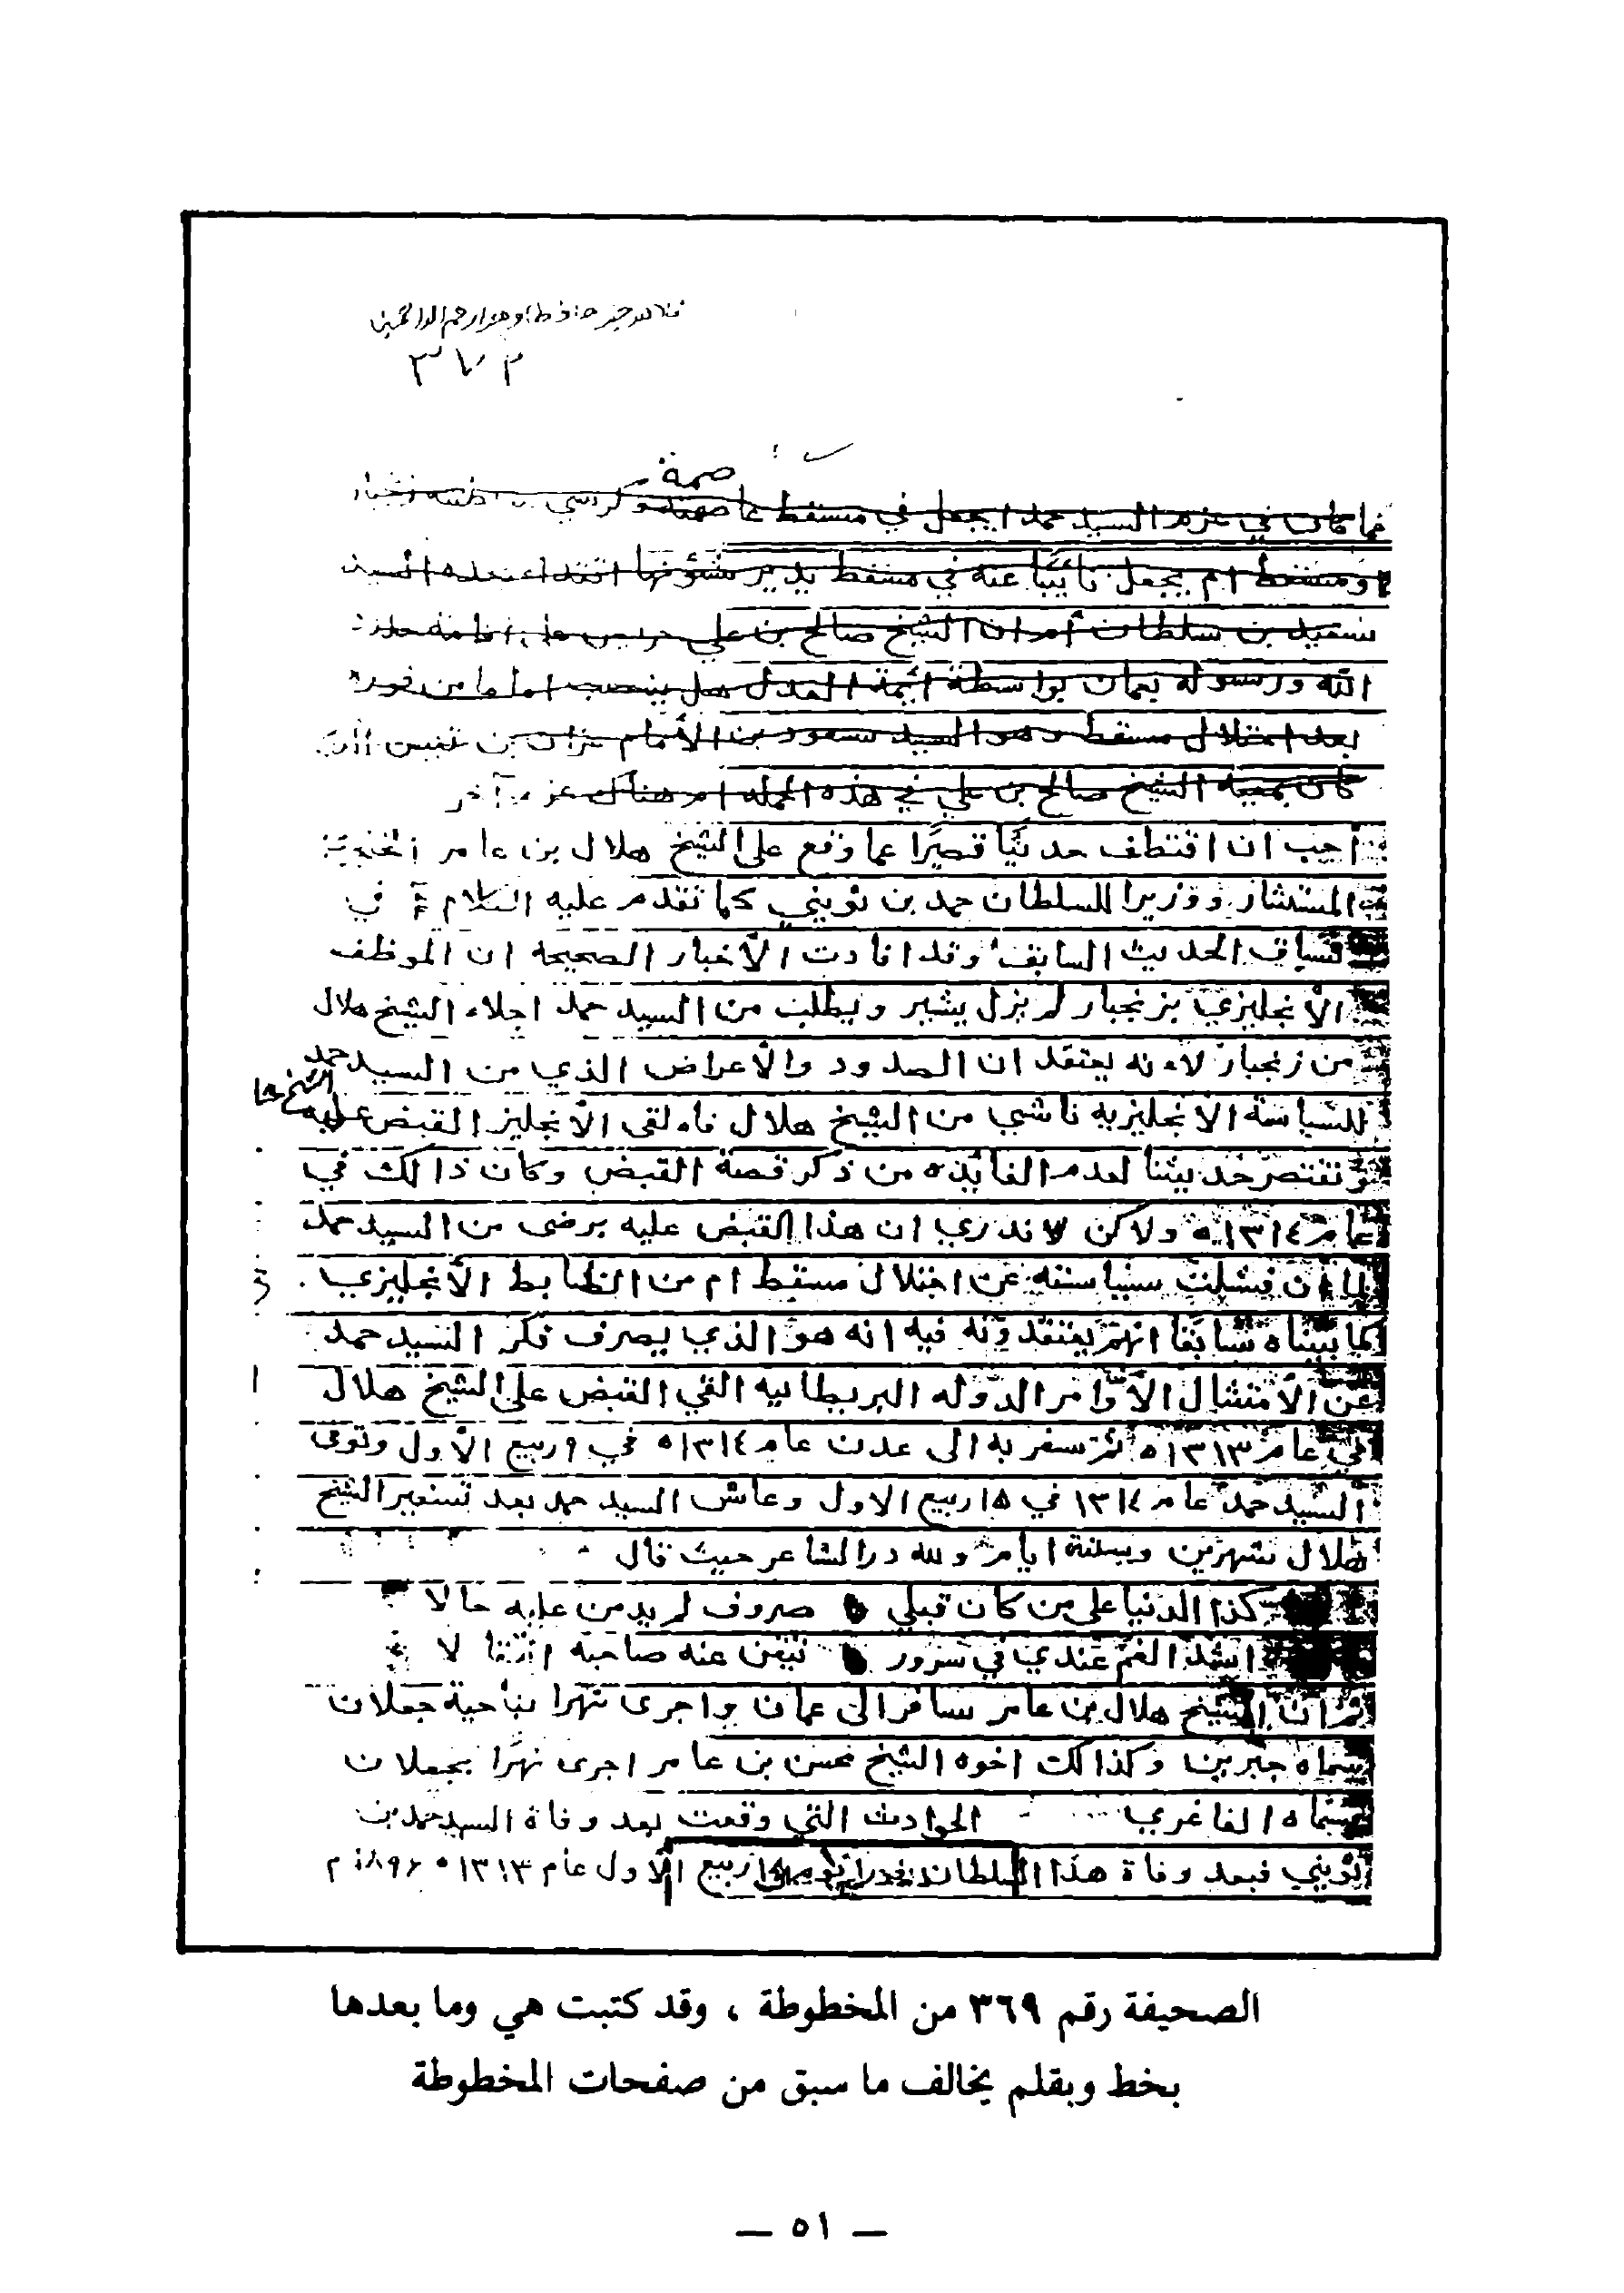 فالله خير حافظا وهو ارحم الراحمين
٣٧٢
صمة
فما كان في عزم السيد حمد ايجعل في مسقط عاصمته وكرسي زنجبار
ومسقط ام يجعل نائبًا عنه في مسقط يدير شئونها السيد
سعيد بن سلطان أم ان الشيخ صالح بن علي حريص على اقامة
الله ورسوله بعمان بواسطة ائمة العدل هل ينصب اماما من فوره
بعد احتلال مسقط وهو السيد سعود بن الأمام عزان بن قيس
كان بمعيته الشيخ صالح بن علي في هذه الحمله ام هناك عزم آخر
احب ان اقتطف حديثًا قصيرًا عما وقع على الشيخ هلال بن عامر
المستشار ووزيرا للسلطان حمد بن ثويني كما تقدم عليه الكلام في
سياق الحديث السابق وقد افادت الأخبار الصحيحة ان الموظف
الأنجليزي بزنجبار لم يزل يشير ويطلب من السيد حمد اجلاء الشيخ هلال
من زنجبار لاءنه يعتقد ان الصدود والأعراض الذي من السيد حمد
للسياسة الأنجليزية ناشي من الشيخ هلال فاءلقى الأنجليز القبض عليه
ونقتصر حديثنا لعدم الفائده من ذكر قصة القبض وكان ذالك في
عام ١٣١٤ه ولاكن لا ندري ان هذا القبض عليه برضى من السيد حمد
لما ان فشلت سياسته عن احتلال مسقط ام من الظابط الأنجليزي
كما بيناه سابقا انهم يعتقدونه فيه انه هو الذي يصرف فكر السيد حمد
عن الأمتشال الأوامر الدوله البريطانيه القي القبض على الشيخ هلال
في عام ١٣١٣ه ثم سفر به الى عدن عام ١٣١٤ه في ٩ ربيع الأول وتوفى
السيد حمد عام ١٣١٤ في ١٥ ربيع الاول وعاش السيد حمد بعد تسفير الشيخ
هلال شهرين وستة ايام ولله در الشاعر حيث قال
كذا الدنيا على من كان قبلي صروف لم يدمن عليه حالا
اشد الغم عندي في سرور تيقن عنه صاحبه انتقالا
ثم ان الشيخ هلال بن عامر سافر الى عمان واجرى نهرا بناحية جعلان
سماه جبرين وكذالك اخوه الشيخ محسن بن عامر اجرى نهرًا بجعلان
سماه الفاغري الحوادث التي وقعت بعد وفاة السيد حمد بن
ثويني فبعد وفاة هذا السلطان ربيع الأول عام ١٣١٣ه ١٨٩٦م
الصحيفة رقم ٣٦٩ من المخطوطة ، وقد كتبت هي وما بعدها
بخط وبقلم يخالف ما سبق من صفحات المخطوطة
— ٥١ —